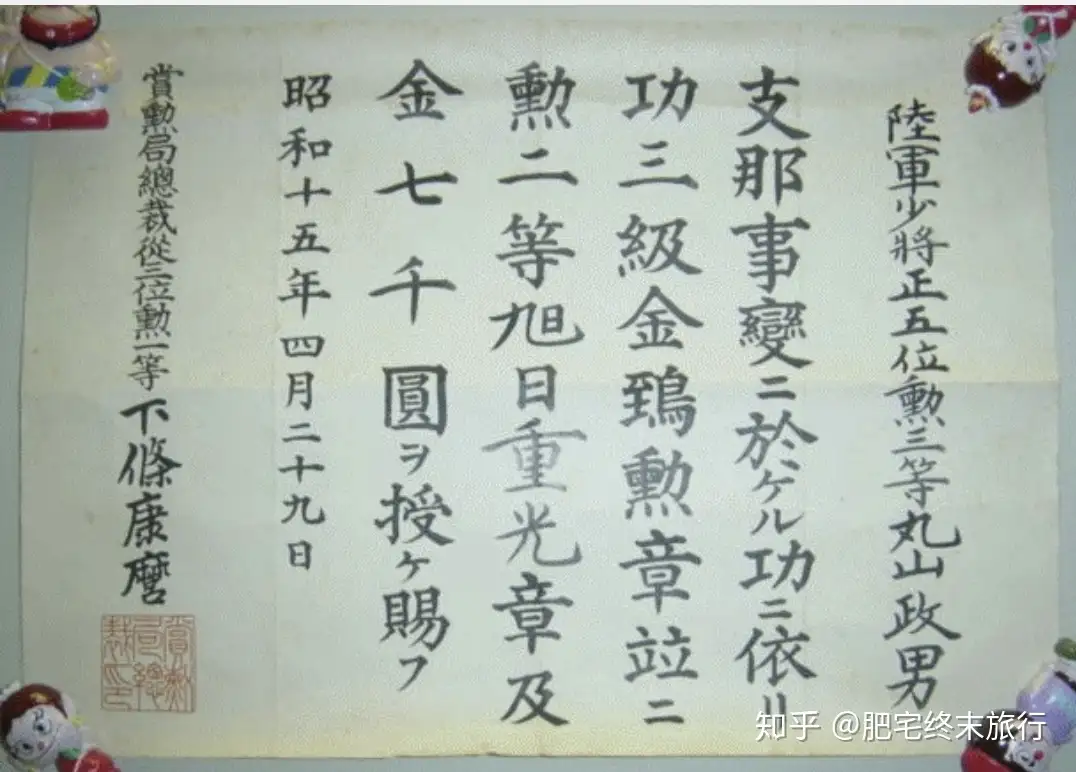 陸軍少將正五位勲三等丸山政男
支那事變ニ於ケル功ニ依リ
功三級金鵄勲章竝ニ
勲二等旭日重光章及
金七千圓ヲ授ケ賜フ
昭和十五年四月二十九日
賞勲局總裁從三位勲一等下條康麿
賞勲局總裁印
知乎 @肥宅终末旅行